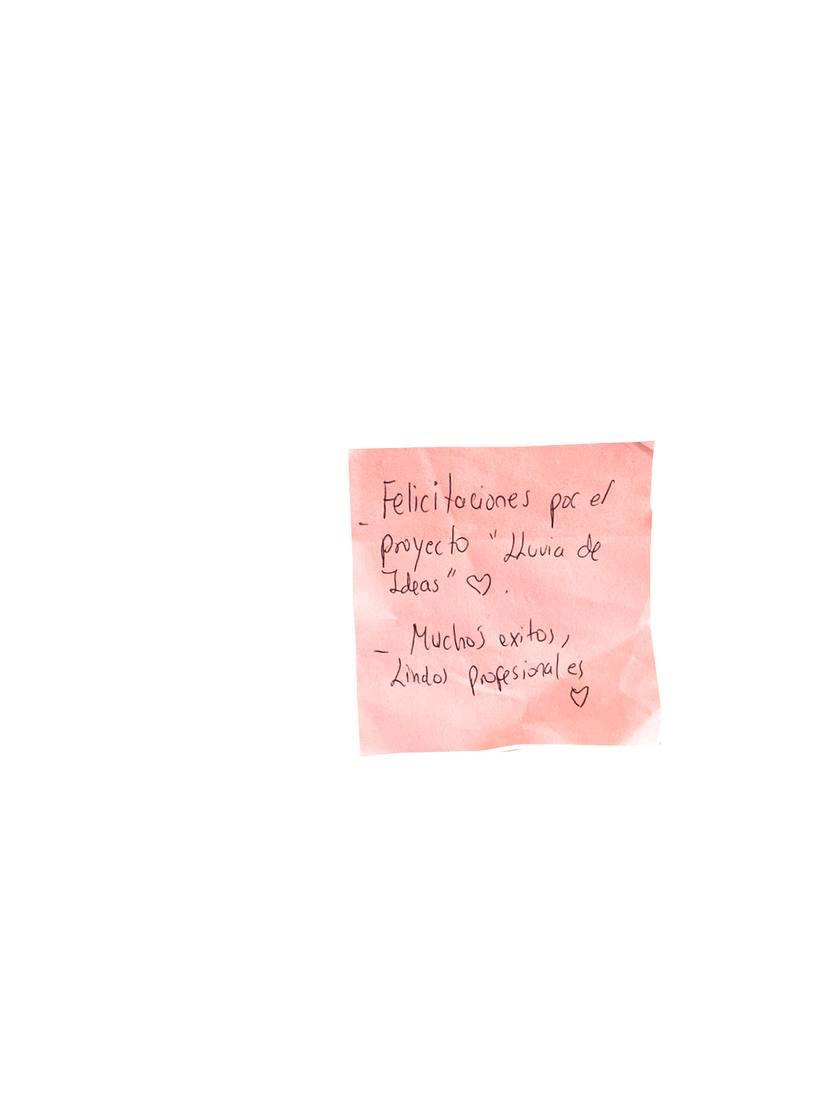 - Felicitaciones por el
proyecto "Lluvia de
Ideas" ♡.
- Muchos exitos,
Lindos profesionales
♡